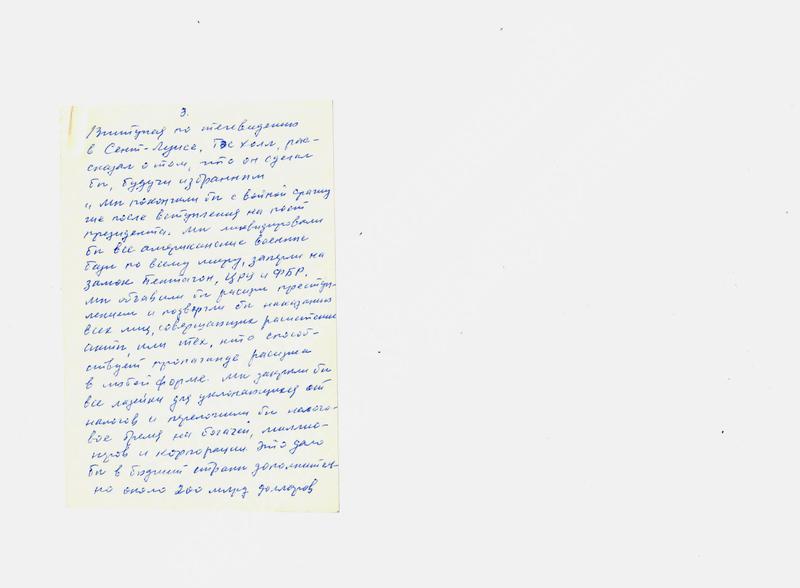 3.
Выступая по телевидению
в Сент-Луисе, Гэс Холл, рас-
сказал о том, что он сделал
бы, будучи избранным
"Мы покончили бы с войной сразу
же после вступления на пост
президента. Мы ликвидировали
бы все американские военные
базы по всему миру, заперли на
замок Пентагон, ЦРУ и ФБР.
Мы объявили бы расизм преступ-
лением и подвергли бы наказанию
всех лиц, совершающих расистские
акты, или тех, кто способ-
ствует пропаганде расизма
в любой форме. Мы закрыли бы
все лазейки для уклоняющихся от
налогов и переложили бы налого-
вое бремя на богачей, миллио-
неров и корпорации. Это дало
бы в бюджет страны дополнитель-
но около 200 млрд долларов